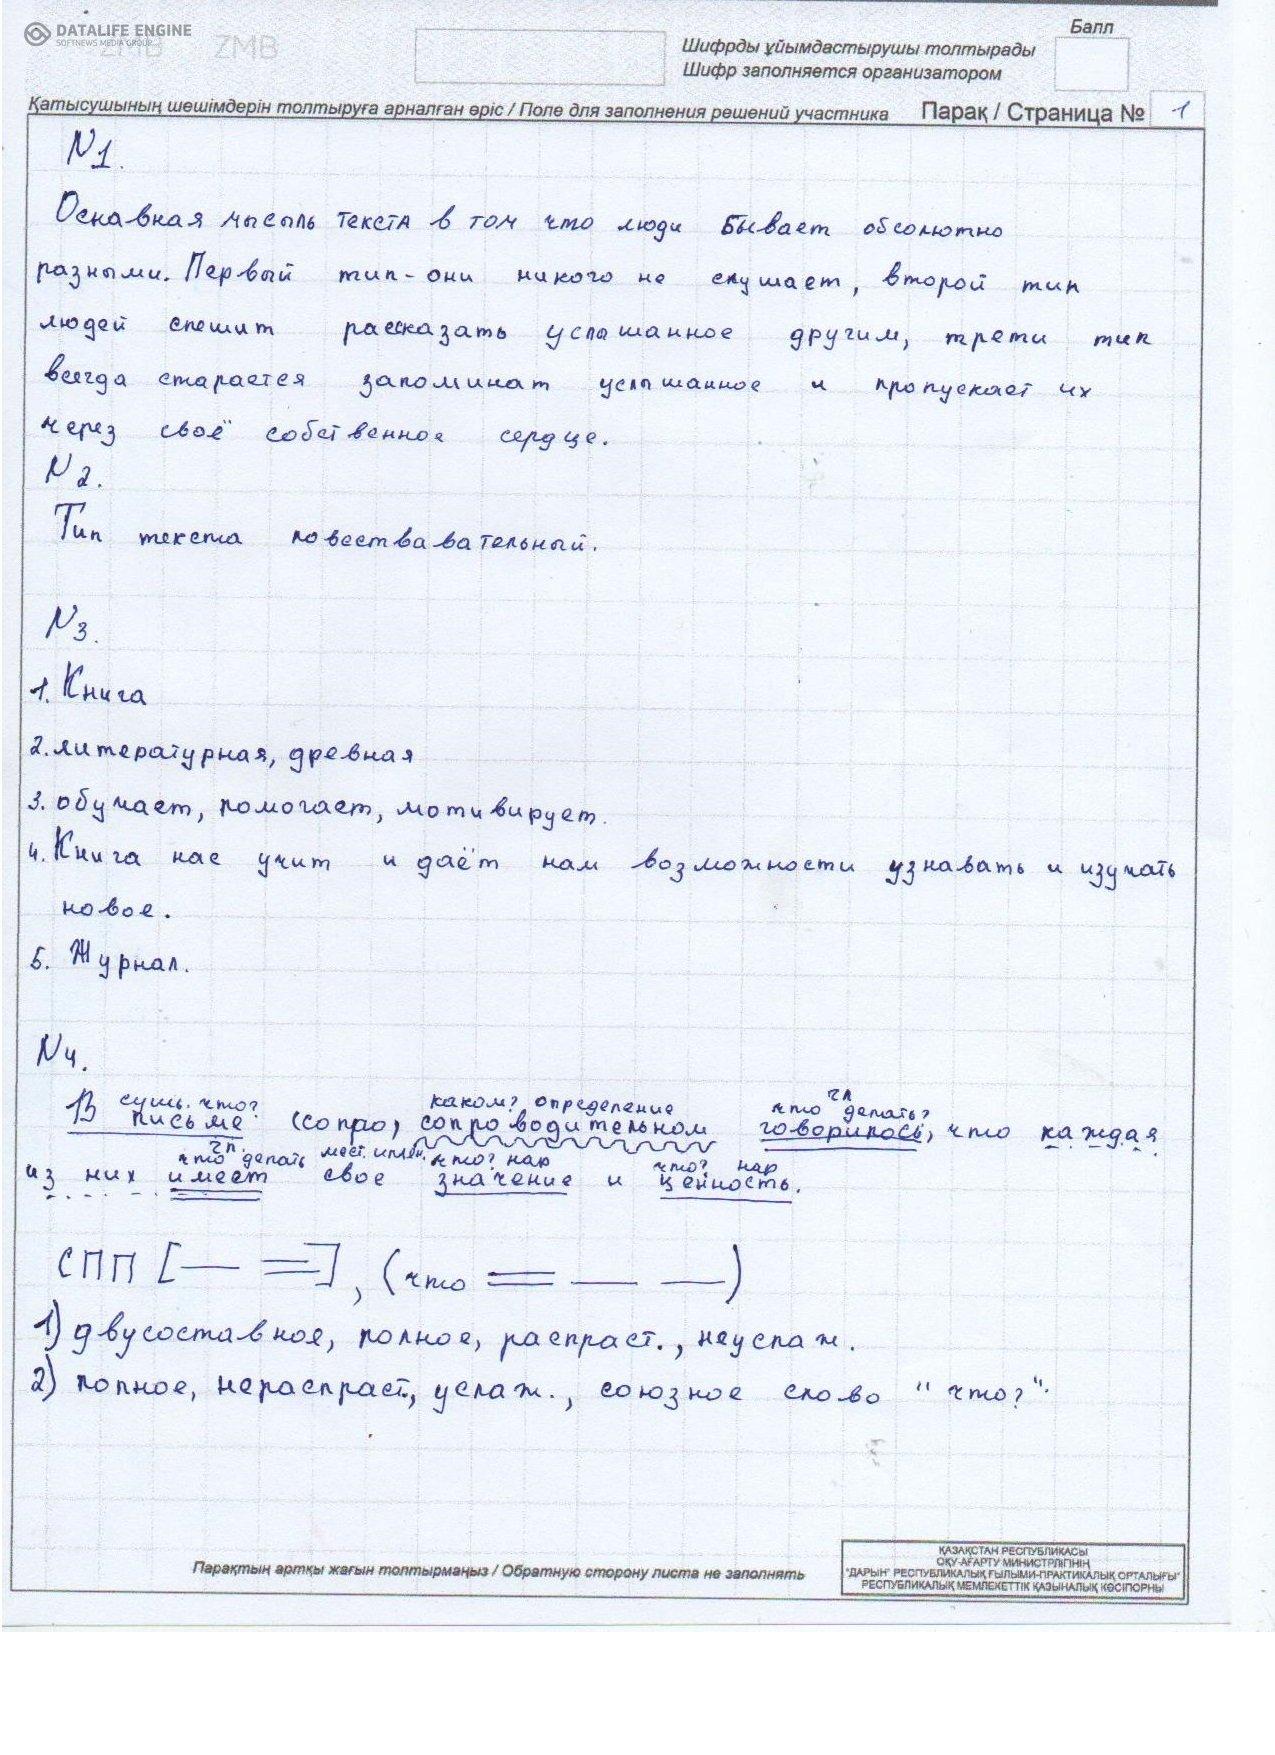 DATALIFE ENGINE
SOFTNEWS MEDIA GROUP
ZMB ZMB
Балл
Шифрды ұйымдастырушы толтырады
Шифр заполняется организатором
Қатысушының шешімдерін толтыруға арналған өріс / Поле для заполнения решений участника Парақ / Страница № 1
N1.
Оснавная мысыль текста в том что люди Бывает обсолютно
разными. Первый тип - они никого не слушает, второй тип
людей спешит рассказать услышанное другим, трети тип
всегда старается запоминат услышанное и пропускает их
через своё собственное сердце.
N2.
Тип текста повествавательный.
N3.
1. Книга
2. литературная, древная
3. обучает, помогает, мотивирует.
4. Книга нас учит и даёт нам возможности узнавать и изучать
новое.
5. Журнал.
N4.
сущь. что? каком? определение гл что делать?
В письме (сопро) сопроводительном говорилось, что каждая
гл. что делать мест. что? нар что? нар
из них имеет свое значение и ценность.
СПП [— =], (что = — —)
1) двусоставное, полное, распраст., неуслаж.
2) полное, нераспраст., услаж., союзное слово "что?".
Парақтың артқы жағын толтырмаңыз / Обратную сторону листа не заполнять
ҚАЗАҚСТАН РЕСПУБЛИКАСЫ
ОҚУ-АҒАРТУ МИНИСТРЛІГІНІҢ
"ДАРЫН" РЕСПУБЛИКАЛЫҚ ҒЫЛЫМИ-ПРАКТИКАЛЫҚ ОРТАЛЫҒЫ"
РЕСПУБЛИКАЛЫҚ МЕМЛЕКЕТТІК ҚАЗЫНАЛЫҚ КӘСІПОРНЫ